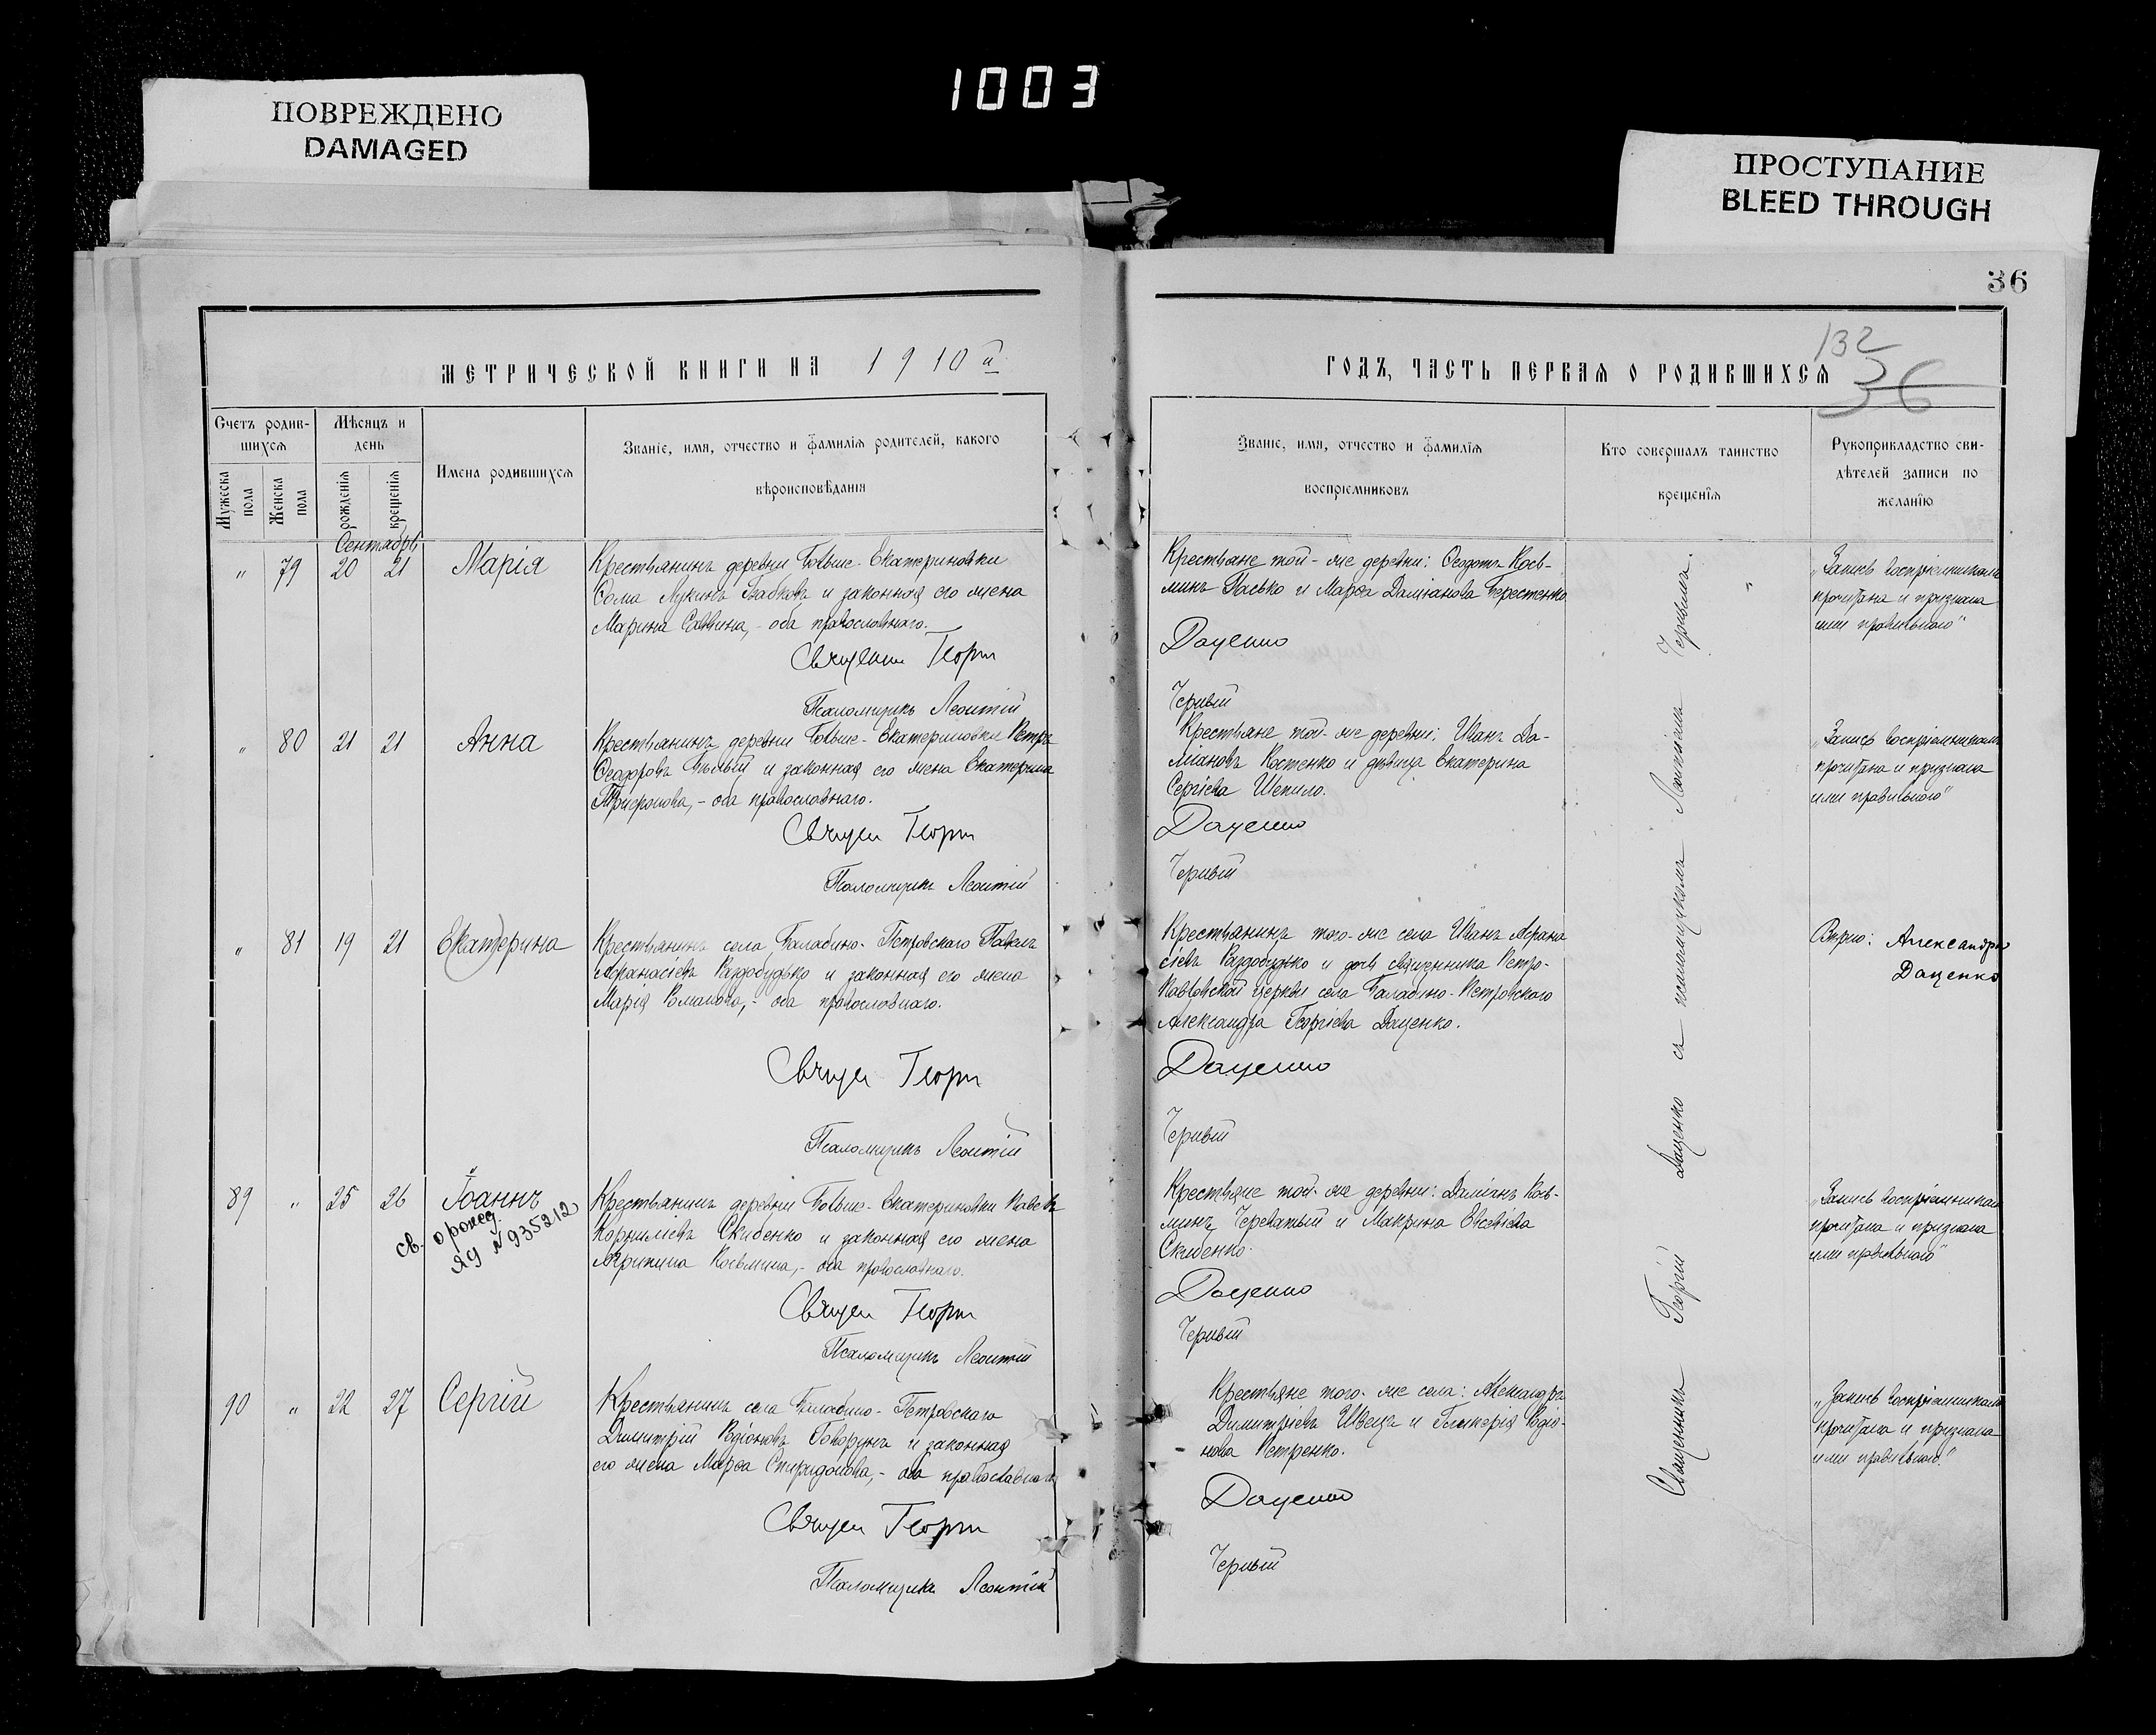 1003
ПОВРЕЖДЕНО
DAMAGED
ПРОСТУПАНИЕ
BLEED THROUGH
36
132
36
МЕТРИЧЕСКОЙ КНИГИ НА 1910й
ГОДЪ, ЧАСТЬ ПЕРВАЯ О РОДИВШИХСЯ
Счетъ родив-
шихся
Мужеска пола
Женска пола
Мѣсяцъ и
день
рожденія
крещенія
Имена родившихся
Званіе, имя, отчество и фамилія родителей, какого
вѣроисповѣданія
Званіе, имя, отчество и фамилія
воспріемниковъ
Кто совершалъ таинство
крещенія
Рукоприкладство сви-
дѣтелей записи по
желанію
Сентябрь
" 79 20 21 Марія
Крестьянинъ деревни Больше-Екатериновки
Ѳома Лукинъ Бабковъ и законная его жена
Марина Саввина, - оба православнаго.
Священ Георгій
Псаломщикъ Леонтій
Крестьяне той-же деревни: Ѳеодотъ Кось-
минъ Пасько и Марѳа Даміанова Берестенко
Даценко
Черный
"Запись воспріемникамъ
прочитана и признана
ими правильного"
" 80 21 21 Анна
Крестьянинъ деревни Больше-Екатериновки Петръ
Ѳеодоровъ Бѣлый и законная его жена Екатерина
Трифонова, - оба православнаго.
Священ Георгій
Псаломщикъ Леонтій
Крестьяне той-же деревни: Иванъ Да-
міановъ Костенко и дѣвица Екатерина
Сергіева Шепило.
Даценко
Черный
"Запись воспріемникамъ
прочитана и признана
ими правильного"
" 81 19 21 Екатерина
Крестьянинъ села Балабино-Петровскаго Павелъ
Аѳанасіевъ Раздобудько и законная его жена
Марія Романова, - оба православнаго.
Священ Георгій
Псаломщикъ Леонтій
Крестьянинъ того-же села Иванъ Аѳана
сіевъ Раздобудько и дочь священника Петро-
Павловской церкви села Балабино-Петровскаго
Александра Георгіева Даценко.
Даценко
Черный
Вѣрно: Александра
Даценко
89 " 25 26 Іоаннъ
св. о рожд.
ЯЯ №935212
Крестьянинъ деревни Больше-Екатериновки Павелъ
Корниліевъ Скибенко и законная его жена
Агрипина Косьмина, - оба православнаго.
Священ Георгій
Псаломщикъ Леонтій
Крестьяне той-же деревни: Даміанъ Кось-
минъ Череватый и Макрина Евсевіева
Скибенко.
Даценко
Черный
"Запись воспріемникамъ
прочитана и признана
ими правильного"
90 " 22 27 Сергій
Крестьянинъ села Балабино-Петровскаго
Димитрій Родіоновъ Говорунъ и законная
его жена Марѳа Спиридонова, - оба православнаго
Священ Георгій
Псаломщикъ Леонтій
Крестьяне того-же села: Александръ
Димитріевъ Швецъ и Гликерія Родіо-
нова Петренко.
Даценко
Черный
"Запись воспріемникамъ
прочитана и признана
ими правильного."
Священникъ Георгій Даценко съ псаломщикомъ Леонтіемъ Чернымъ.